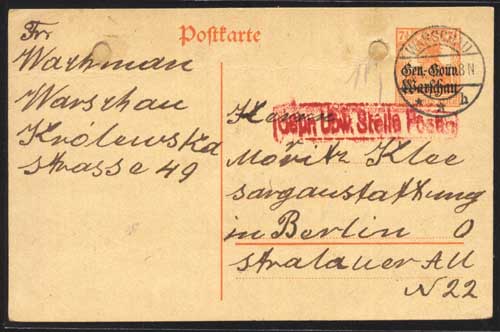 Postkarte
Fr.
Wachman
Warschau
Królewska
strasse 49
WARSCHAU
8N
Gen.-Gouv.
Warschau
b
Herrn
Geprüft Stelle Posen
Moritz Klee
sargaustattung
in Berlin O
stralauer All
N 22